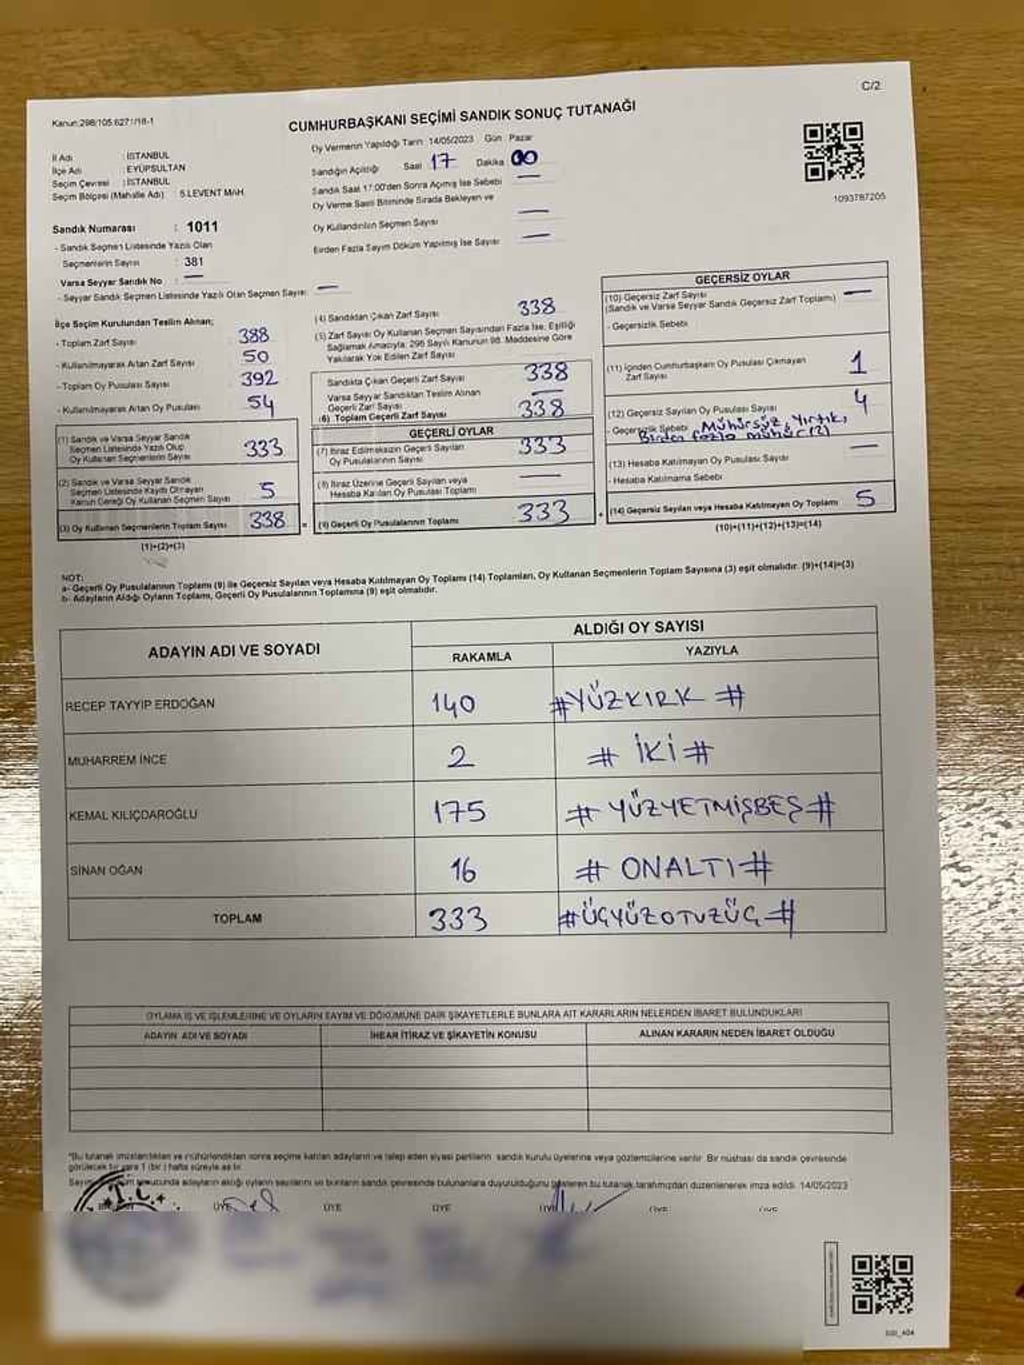 C/2
Kanun:298/105.6271/18-1
CUMHURBAŞKANI SEÇİMİ SANDIK SONUÇ TUTANAĞI
İl Adı : İSTANBUL
İlçe Adı : EYÜPSULTAN
Seçim Çevresi : İSTANBUL
Seçim Bölgesi (Mahalle Adı) : 5.LEVENT MAH.
Oy Vermenin Yapıldığı Tarih 14/05/2023 Gün Pazar
Sandığın Açıldığı Saat 17 Dakika 00
Sandık Saat 17:00'den Sonra Açılmış İse Sebebi —
Oy Verme Saati Bitiminde Sırada Bekleyen ve
Oy Kullandırılan Seçmen Sayısı —
Birden Fazla Sayım Döküm Yapılmış İse Sayısı —
1093787205
Sandık Numarası : 1011
- Sandık Seçmen Listesinde Yazılı Olan
Seçmenlerin Sayısı : 381
Varsa Seyyar Sandık No : —
- Seyyar Sandık Seçmen Listesinde Yazılı Olan Seçmen Sayısı: —
İlçe Seçim Kurulundan Teslim Alınan;
- Toplam Zarf Sayısı : 388
- Kullanılmayarak Artan Zarf Sayısı : 50
- Toplam Oy Pusulası Sayısı : 392
- Kullanılmayarak Artan Oy Pusulası : 54
(1) Sandık ve Varsa Seyyar Sandık
Seçmen Listesinde Yazılı Olup
Oy Kullanan Seçmenlerin Sayısı 333
(2) Sandık ve Varsa Seyyar Sandık
Seçmen Listesinde Kaydı Olmayan
Kanun Gereği Oy Kullanan Seçmen Sayısı 5
(3) Oy Kullanan Seçmenlerin Toplam Sayısı 338
(1)+(2)=(3)
(4) Sandıktan Çıkan Zarf Sayısı 338
(5) Zarf Sayısı Oy Kullanan Seçmen Sayısından Fazla İse, Eşitliği
Sağlamak Amacıyla; 298 Sayılı Kanunun 98. Maddesine Göre
Yakılarak Yok Edilen Zarf Sayısı
Sandıkta Çıkan Geçerli Zarf Sayısı 338
Varsa Seyyar Sandıktan Teslim Alınan
Geçerli Zarf Sayısı —
(6) Toplam Geçerli Zarf Sayısı 338
GEÇERLİ OYLAR
(7) İtiraz Edilmeksizin Geçerli Sayılan
Oy Pusulalarının Sayısı 333
(8) İtiraz Üzerine Geçerli Sayılan veya
Hesaba Katılan Oy Pusulası Toplamı —
(9) Geçerli Oy Pusulalarının Toplamı 333
GEÇERSİZ OYLAR
(10) Geçersiz Zarf Sayısı —
(Sandık ve Varsa Seyyar Sandık Geçersiz Zarf Toplamı)
- Geçersizlik Sebebi
(11) İçinden Cumhurbaşkanı Oy Pusulası Çıkmayan
Zarf Sayısı 1
(12) Geçersiz Sayılan Oy Pusulası Sayısı 4
- Geçersizlik Sebebi Mühürsüz, Yırtık,
Birden fazla mühür (2)
(13) Hesaba Katılmayan Oy Pusulası Sayısı —
- Hesaba Katılmama Sebebi
(14) Geçersiz Sayılan veya Hesaba Katılmayan Oy Toplamı 5
(10)+(11)+(12)+(13)=(14)
NOT:
a- Geçerli Oy Pusulalarının Toplamı (9) ile Geçersiz Sayılan veya Hesaba Katılmayan Oy Toplamı (14) Toplamları, Oy Kullanan Seçmenlerin Toplam Sayısına (3) eşit olmalıdır. (9)+(14)=(3)
b- Adayların Aldığı Oyların Toplamı, Geçerli Oy Pusulalarının Toplamına (9) eşit olmalıdır.
ADAYIN ADI VE SOYADI
ALDIĞI OY SAYISI
RAKAMLA YAZIYLA
RECEP TAYYİP ERDOĞAN 140 #YÜZKIRK#
MUHARREM İNCE 2 #İKİ#
KEMAL KILIÇDAROĞLU 175 #YÜZYETMİŞBEŞ#
SİNAN OĞAN 16 #ONALTI#
TOPLAM 333 #ÜÇYÜZOTUZÜÇ#
OYLAMA İŞ VE İŞLEMLERİNE VE OYLARIN SAYIM VE DÖKÜMÜNE DAİR ŞİKAYETLERLE BUNLARA AİT KARARLARIN NELERDEN İBARET BULUNDUKLARI
ADAYIN ADI VE SOYADI İHBAR İTİRAZ VE ŞİKAYETİN KONUSU ALINAN KARARIN NEDEN İBARET OLDUĞU
*Bu tutanak imzalandıktan ve mühürlendikten sonra seçime katılan adayların ve talep eden siyasi partilerin sandık kurulu üyelerine veya gözlemcilerine verilir. Bir nüshası da sandık çevresinde
görülecek bir yere 1 (bir) hafta süreyle asılır.
Sayım sonucunda adayların aldığı oyların sayılarını ve bunların sandık çevresinde bulunanlara duyurulduğunu gösteren bu tutanak tarafımızdan düzenlenerek imza edildi. 14/05/2023
T.C.
ÜYE ÜYE ÜYE ÜYE ÜYE ÜYE